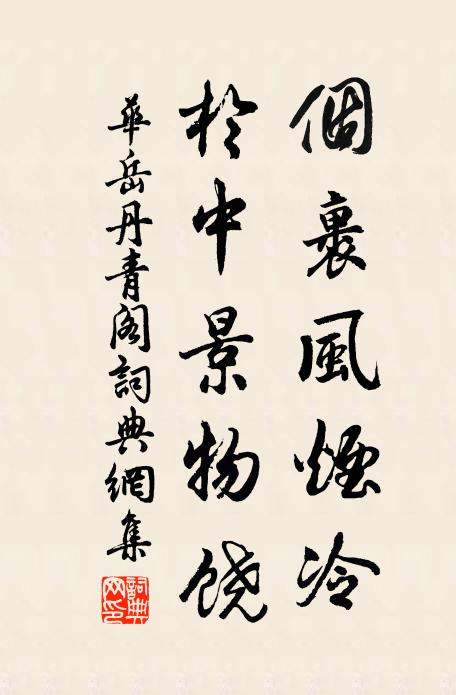 個裏風煙冷
於中景物饶
華岳丹青閣詞典網集
詞典网印